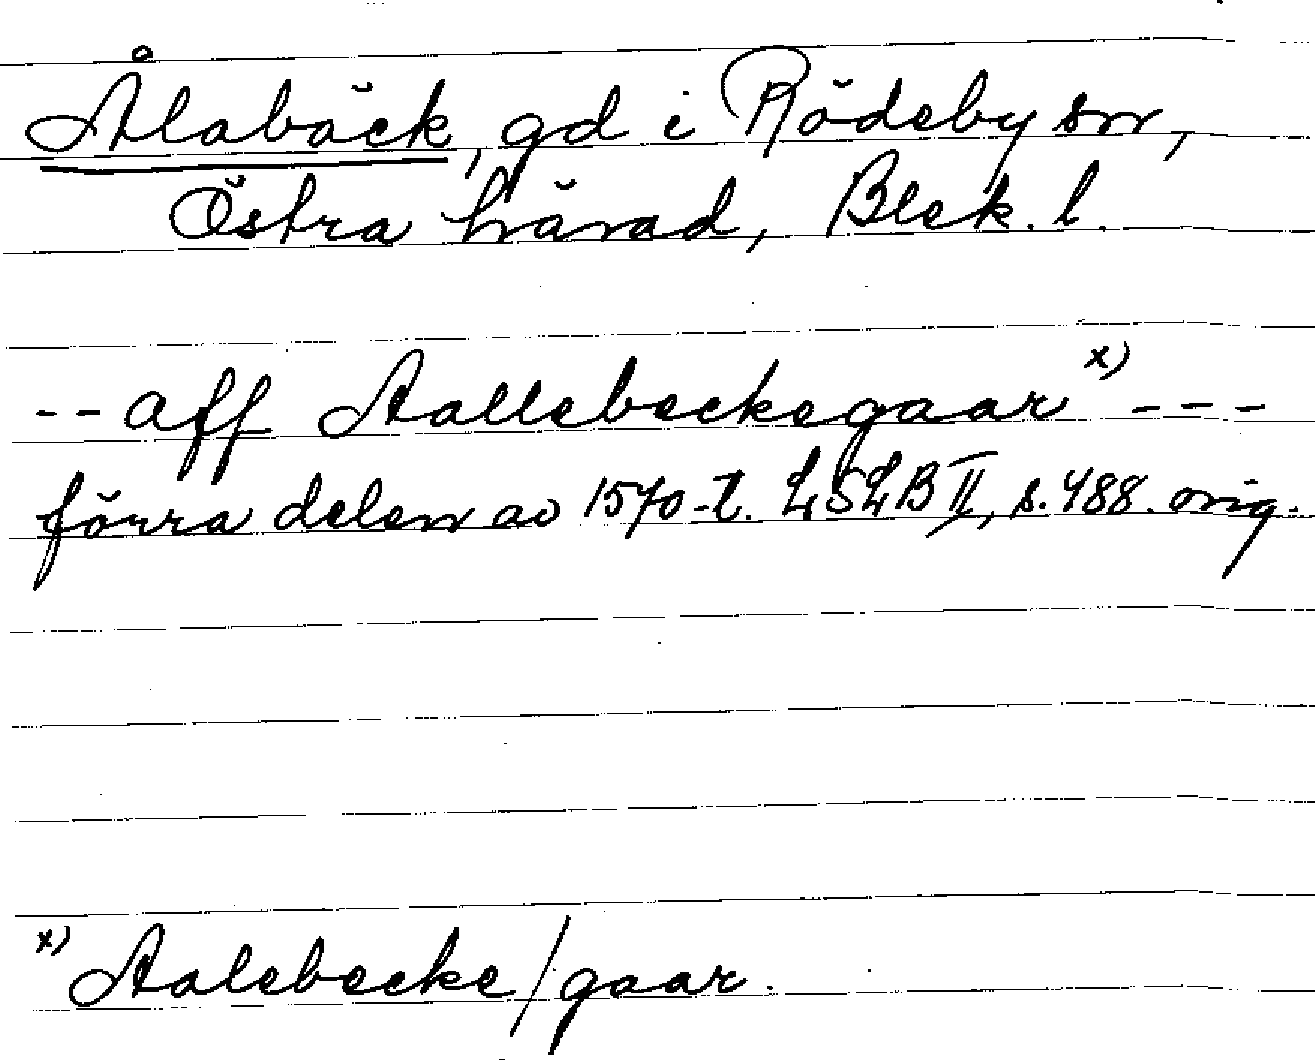 Ålabäck, gd i Rödeby sn,
Östra härad, Blek. l.
-- aff Aallebeckegaar x) ---
förra delen av 1570-t. LSLB II, s. 488. orig.
x) Aalebecke/gaar.